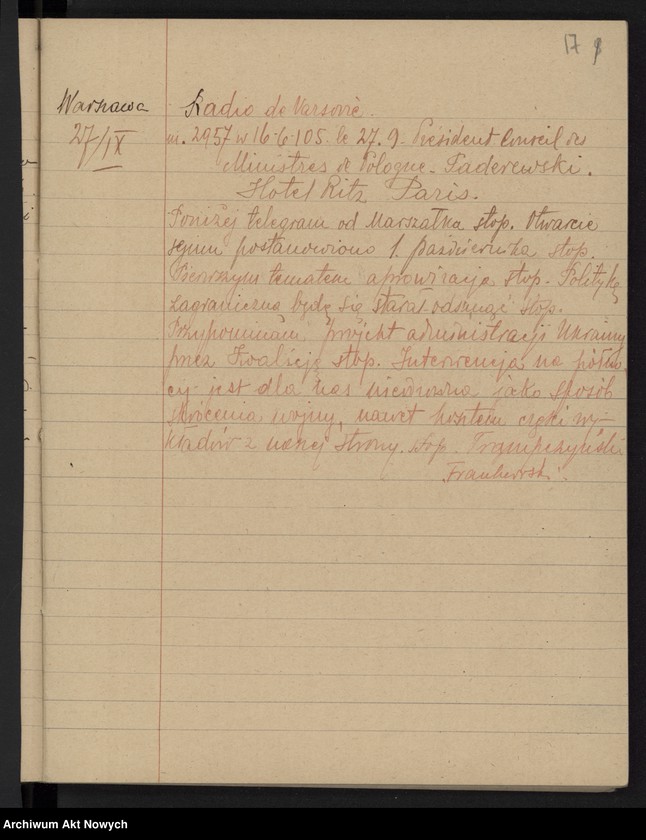 17
Warszawa
27/IX
Radio de Varsovie.
nr. 2957 w 16-6-105. le 27. 9. Président Conseil des
Ministres de Pologne - Paderewski.
Hotel Ritz Paris.
Poniżej telegram od Marszałka stop. Otwarcie
sejmu postanowiono 1. października stop.
Pierwszym tematem aprowizacja stop. Politykę
zagraniczną będę się starał odsunąć stop.
Przypominam projekt administracji Ukrainy
przez Koalicję stop. Interwencja na półno-
cy jest dla nas niezbędna jako sposób
skrócenia wojny, nawet kosztem wy-
kładów z naszej strony. stop. Trąmpczyński
Archiwum Akt Nowych